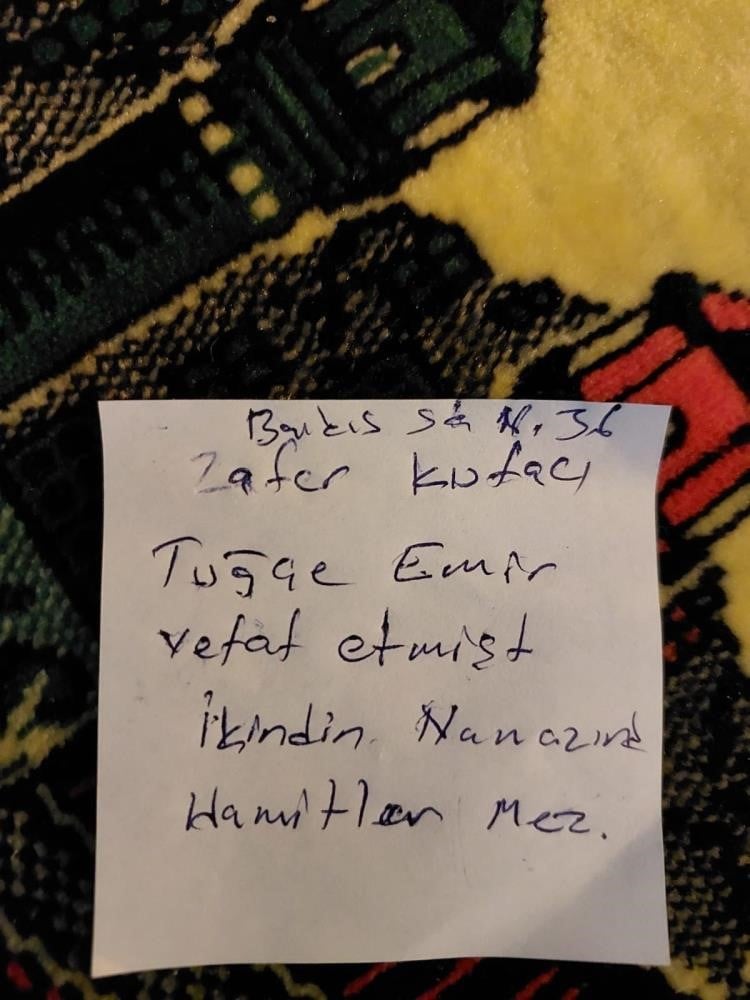 Barkıs Sk N. 36
Zafer Kutacı
Tuğçe Emir
vefat etmişt
İkindin Namazınd
Hamitler Mez.